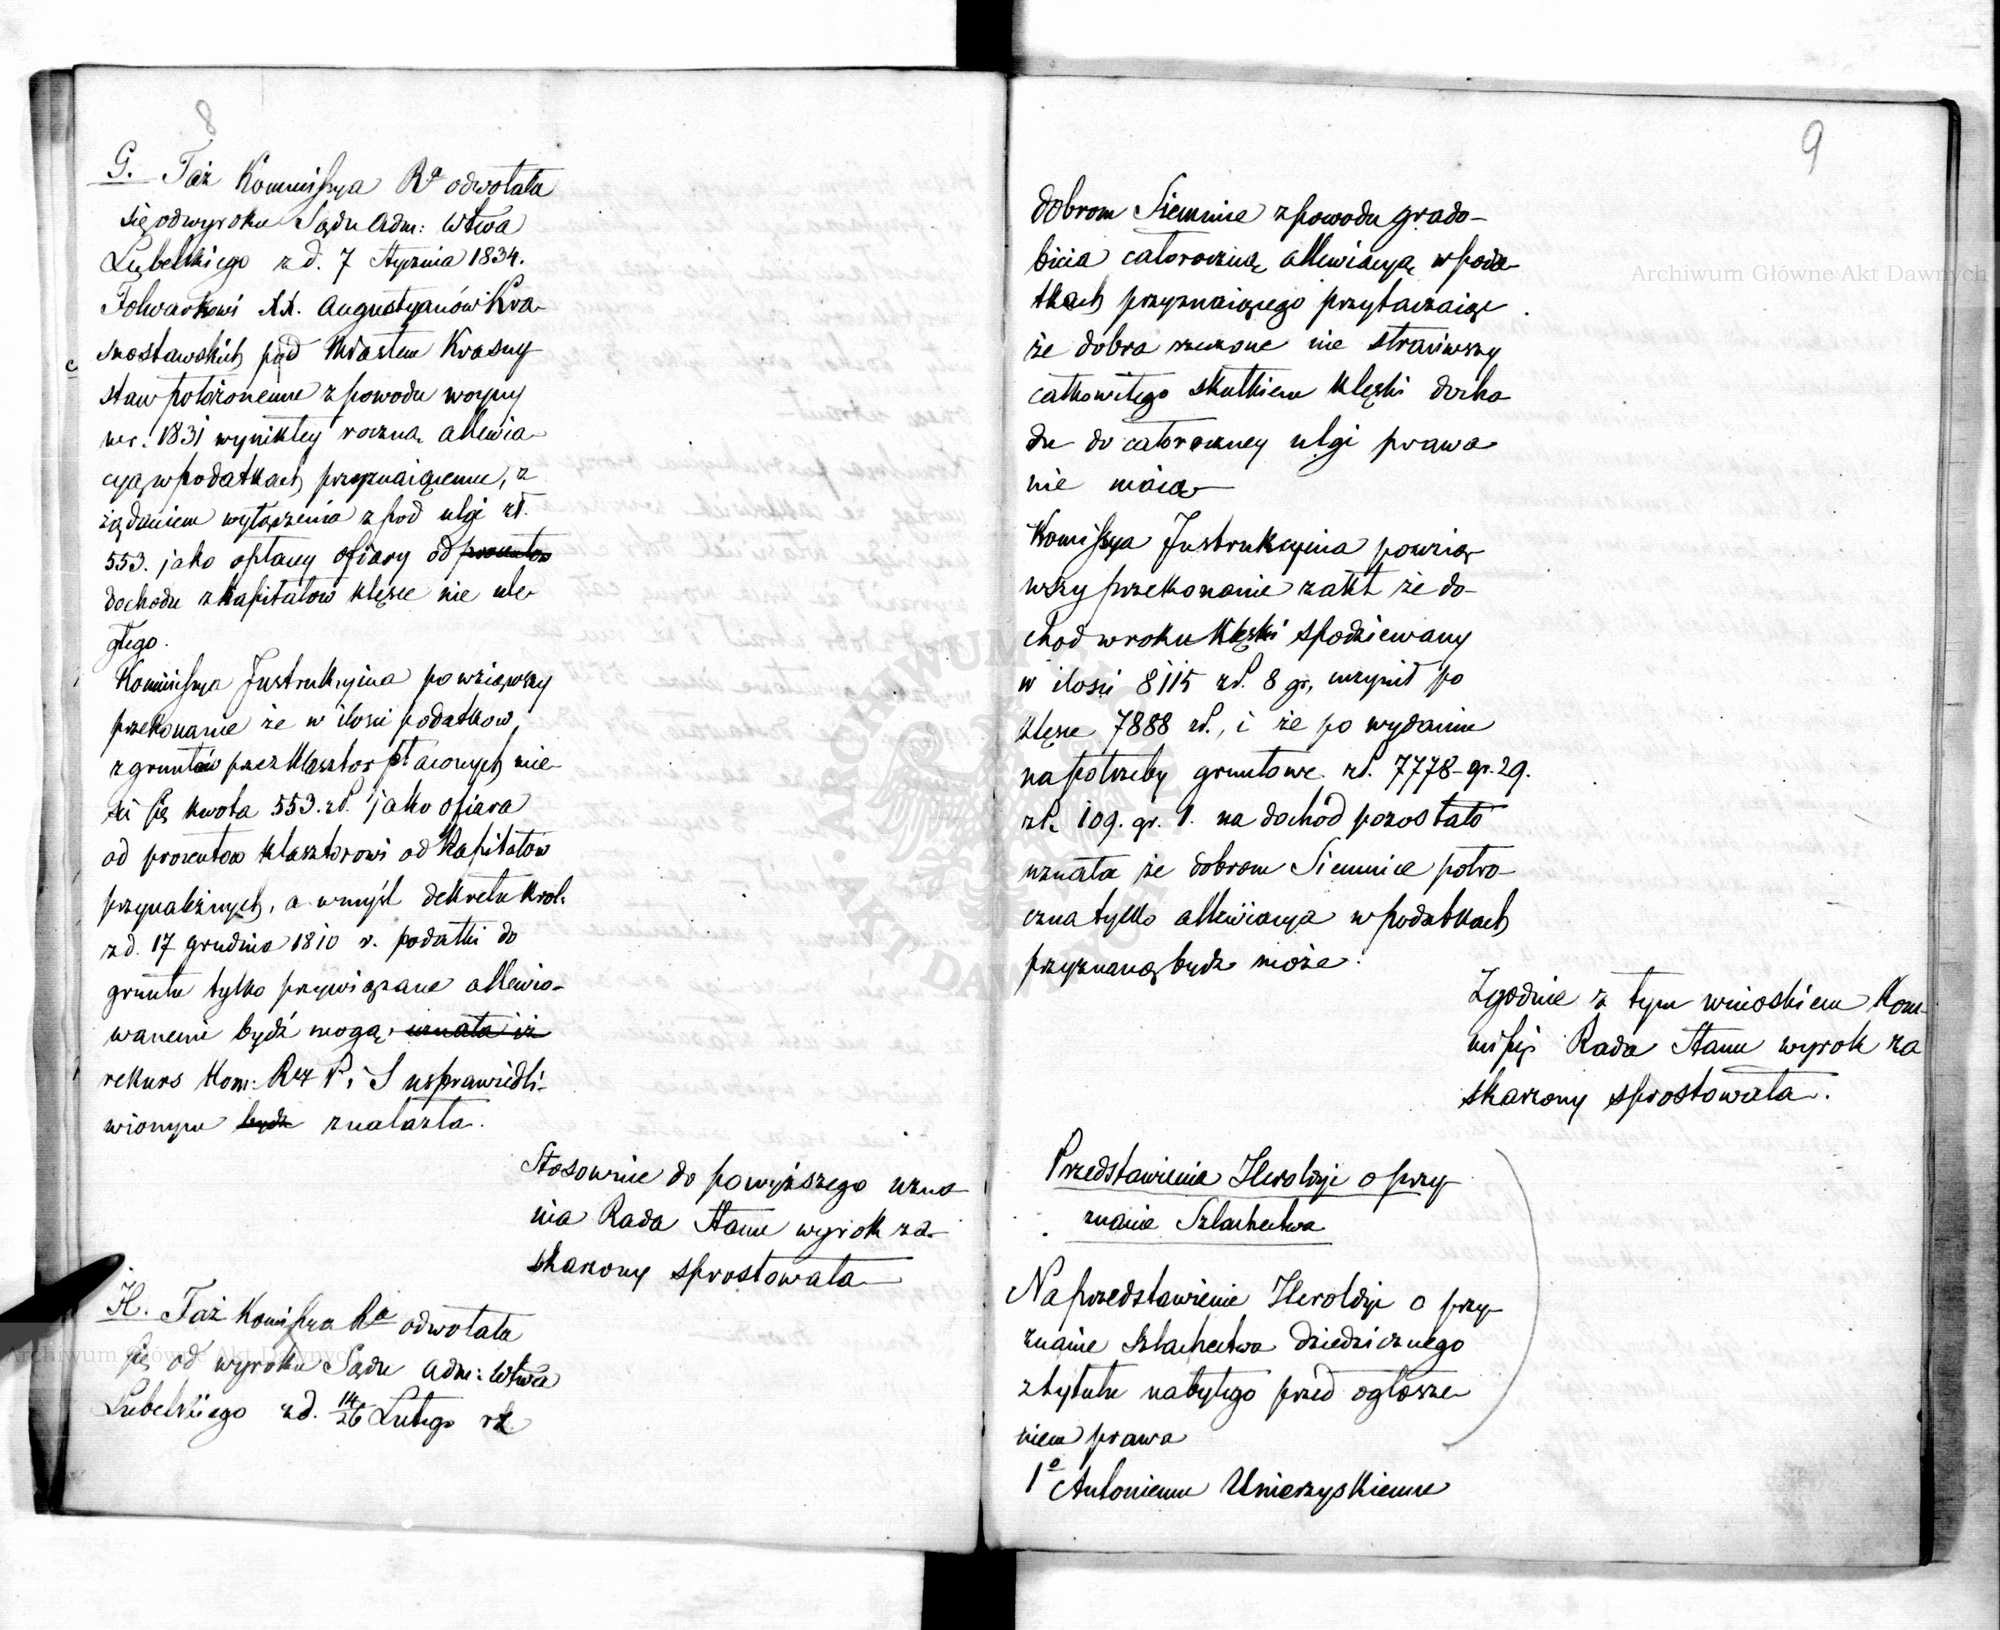 8
G. Taż Kommissya Rª odwołała
się od wyroku Sądu Adm: Wtwa
Lubelskiego z d. 7 Stycznia 1834.
Folwarkowi XX. Augustyanów Kra-
snostawskich pod Miastem Krasny
staw położonemu z powodu woyny
w r. 1831 wynikłey roczną allewia-
cyą w podatkach przyznaiącemu, z
żądaniem wyłączenia z pod ulgi zł.
553. jako opłaty ofiary od procentów
dochodu z kapitałów klęsce nie ule-
głego.
Kommissya Instrukcyina powziąwszy
przekonanie że w ilości podatków,
z gruntów przez Klasztor płaconych mie-
ści się kwota 553. zł. jako ofiara
od procentów klasztorowi od Kapitałów
przynależnych, a w myśl dekretu Król.
z d. 17 grudnia 1810 r. podatki do
gruntu tylko przywiązane allewio-
wanemi bydź mogą, uznała iż
rekurs Kom: Rz P. i S usprawiedli-
wionym bydź znalazła.
Stosownie do powyższego uzna
nia Rada Stanu wyrok za-
skarżony sprostowała
H. Taż Komissya Rª odwołała
się od wyroku Sądu Adm: Wtwa
Lubelskiego z d. 14/26 Lutego rz.
9
dobrom Siennica z powodu grado-
bicia całoroczną allewiacyą w poda-
tkach przyznaiącego przytaczaiąc
że dobra rzeczone nie straciwszy
całkowitego skutkiem klęski docho
du do całoroczney ulgi prawa
nie maią
Komissya Instrukcyina powzią-
wszy przekonanie z akt że do-
chód w roku klęski spodziewany
w ilości 8115 zł. 8 gr, uczynił po
klęsce 7888 zł., i że po wydaniu
na potrzeby gruntowe zł. 7778 gr. 29.
zł. 109. gr. 1. na dochód pozostało
uznała że dobrom Siennica półro-
czna tylko allewiacya w podatkach
przyznaną bydź może.
Zgodnie z tym wnioskiem Kom-
missyi Rada Stanu wyrok za
skarżony sprostowała.
Przedstawienie Heroldyi o przy-
znanie Szlachectwa
Na przedstawienie Heroldyi o przy-
znanie szlachectwa dziedzicznego
z tytułu nabytego przed ogłosze
niem prawa
1º Antoniemu Umierzyskiemu
Archiwum Główne Akt Dawnych
Archiwum Główne Akt Dawnych
ARCHIWUM GŁÓWNE AKT DAWNYCH